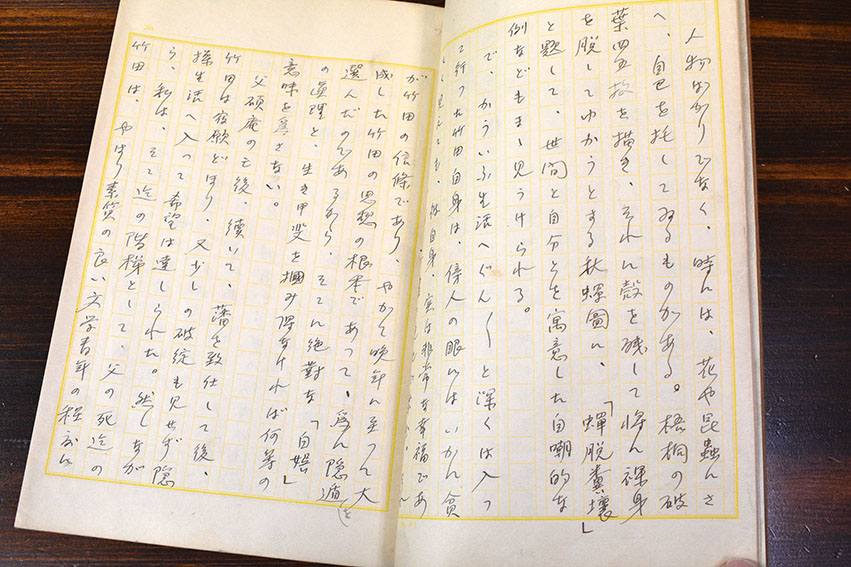 人物ばかりでなく、時には、花や昆蟲にさ
へ、自己を托してゐるものがある。梧桐の破
葉四五枚を描き、それに殻を残して将に裸身
を脱してゆかうとする秋蟬圖に、「蟬脱糞壤」
と題して、世間と自分とを寓意した自嘲的な
例などもまゝ見うけられる。
で、かういふ生活へぐん〳〵と深くは入つ
て行つた竹田自身は、傍人の眼にはいかに貧
しく見えても、彼自身、実は非常な幸福であ
が竹田の信條であり、やがて晩年に至つて大
成した竹田の思想の根本であつて、爲に隠遁を
選んだのであるから、そこに絶對な「自娯」
の眞理と、生き甲斐を掴み得なければ何等の
意味を爲さない。
父碩庵の亡後、續いて、藩を致仕して後、
竹田は宿願どほり、又少しの破綻も見せず隠
操生活へ入つて希望は達しられた。然しなが
ら、私は、そこ迄の階梯として、父の死迄の
竹田は、やはり素質の良い文学青年の程度に